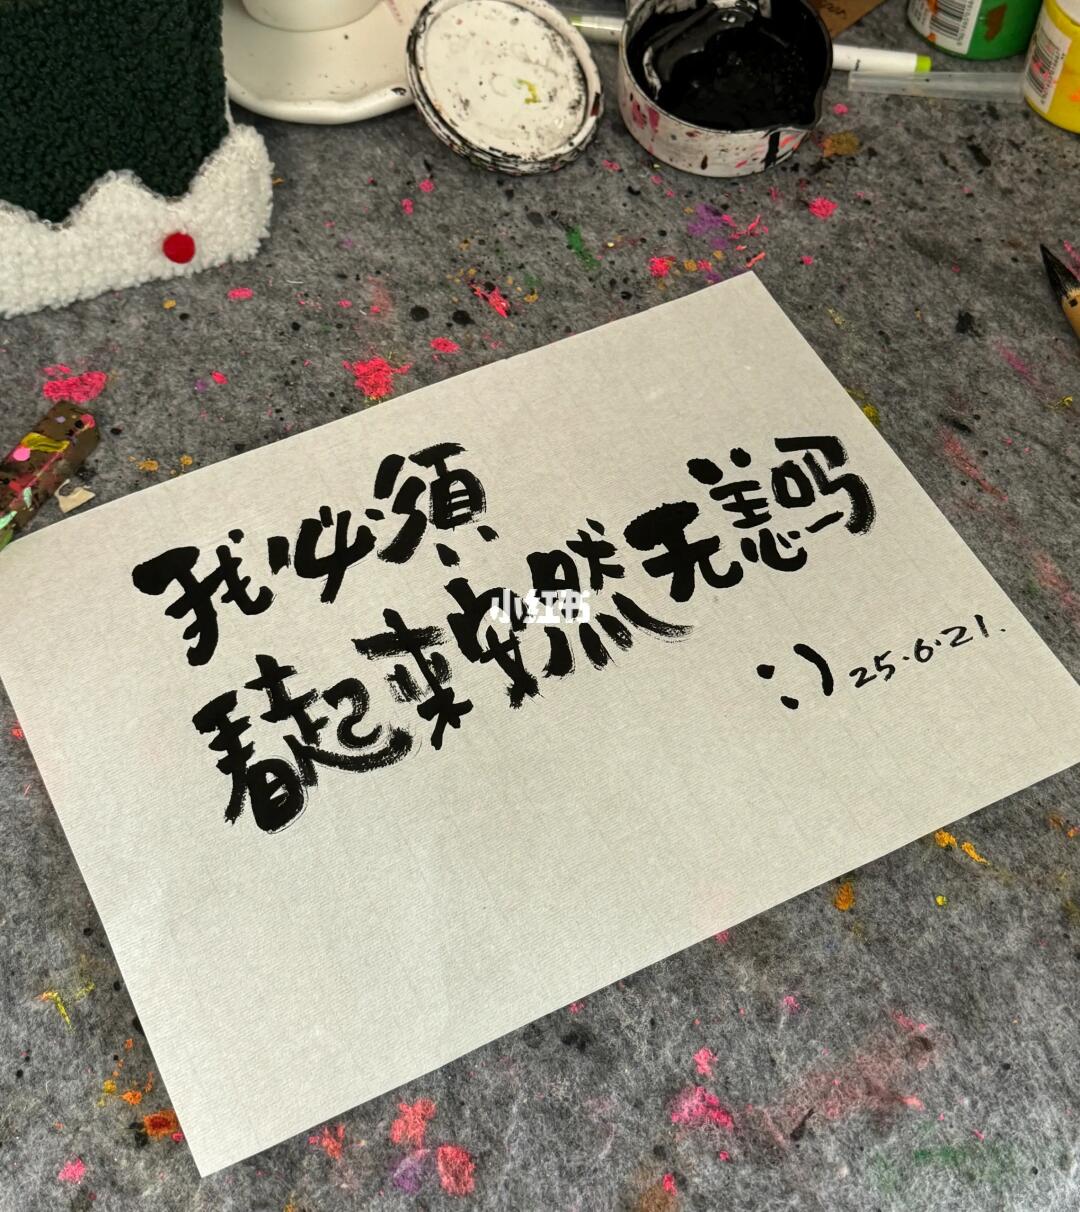 我必須
看起来安然无恙吗
:) 25.6.21.
小红书